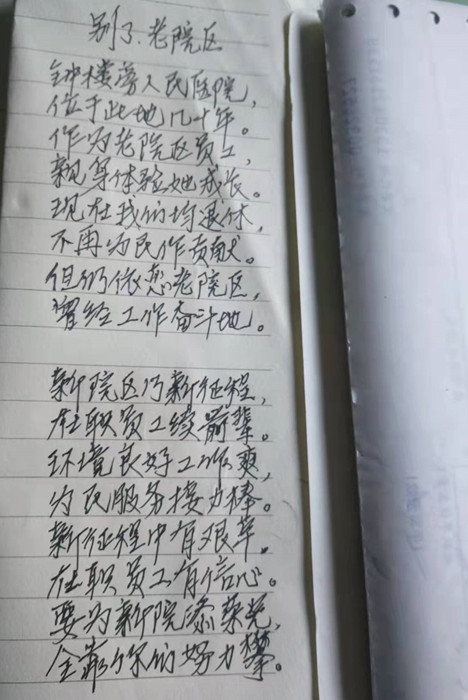 别了、老院区
钟楼旁人民医院,
位于此地几十年。
作为老院区员工,
亲身体验她成长。
现在我们均退休,
不再为民作贡献。
但仍依恋老院区,
曾经工作奋斗地。
新院区乃新征程,
在职员工续前辈。
环境良好工作爽,
为民服务接力棒。
新征程中有艰辛。
在职员工有信心。
要为新院添荣光,
全靠你们努力攀。